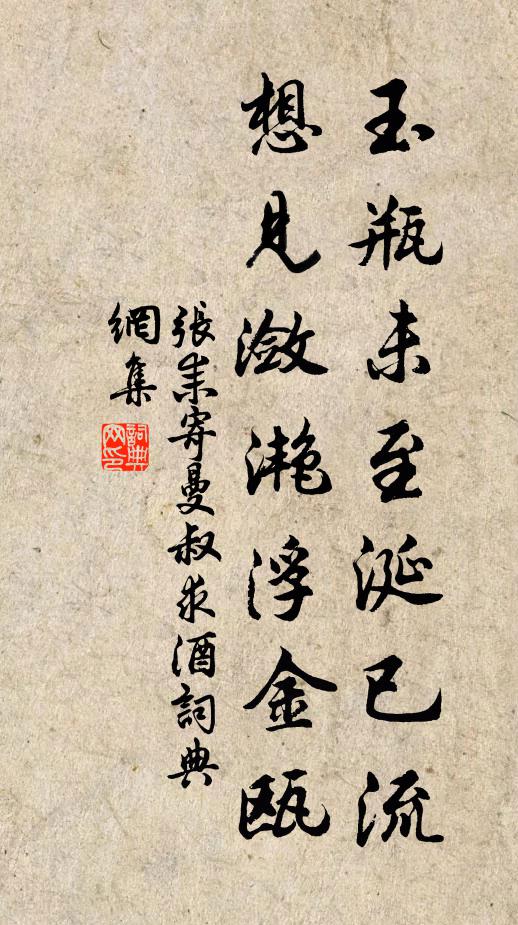 玉瓶未至涎已流
想見瀲灔浮金甌
張耒寄曼叔求酒詞典
網集
詞典網印